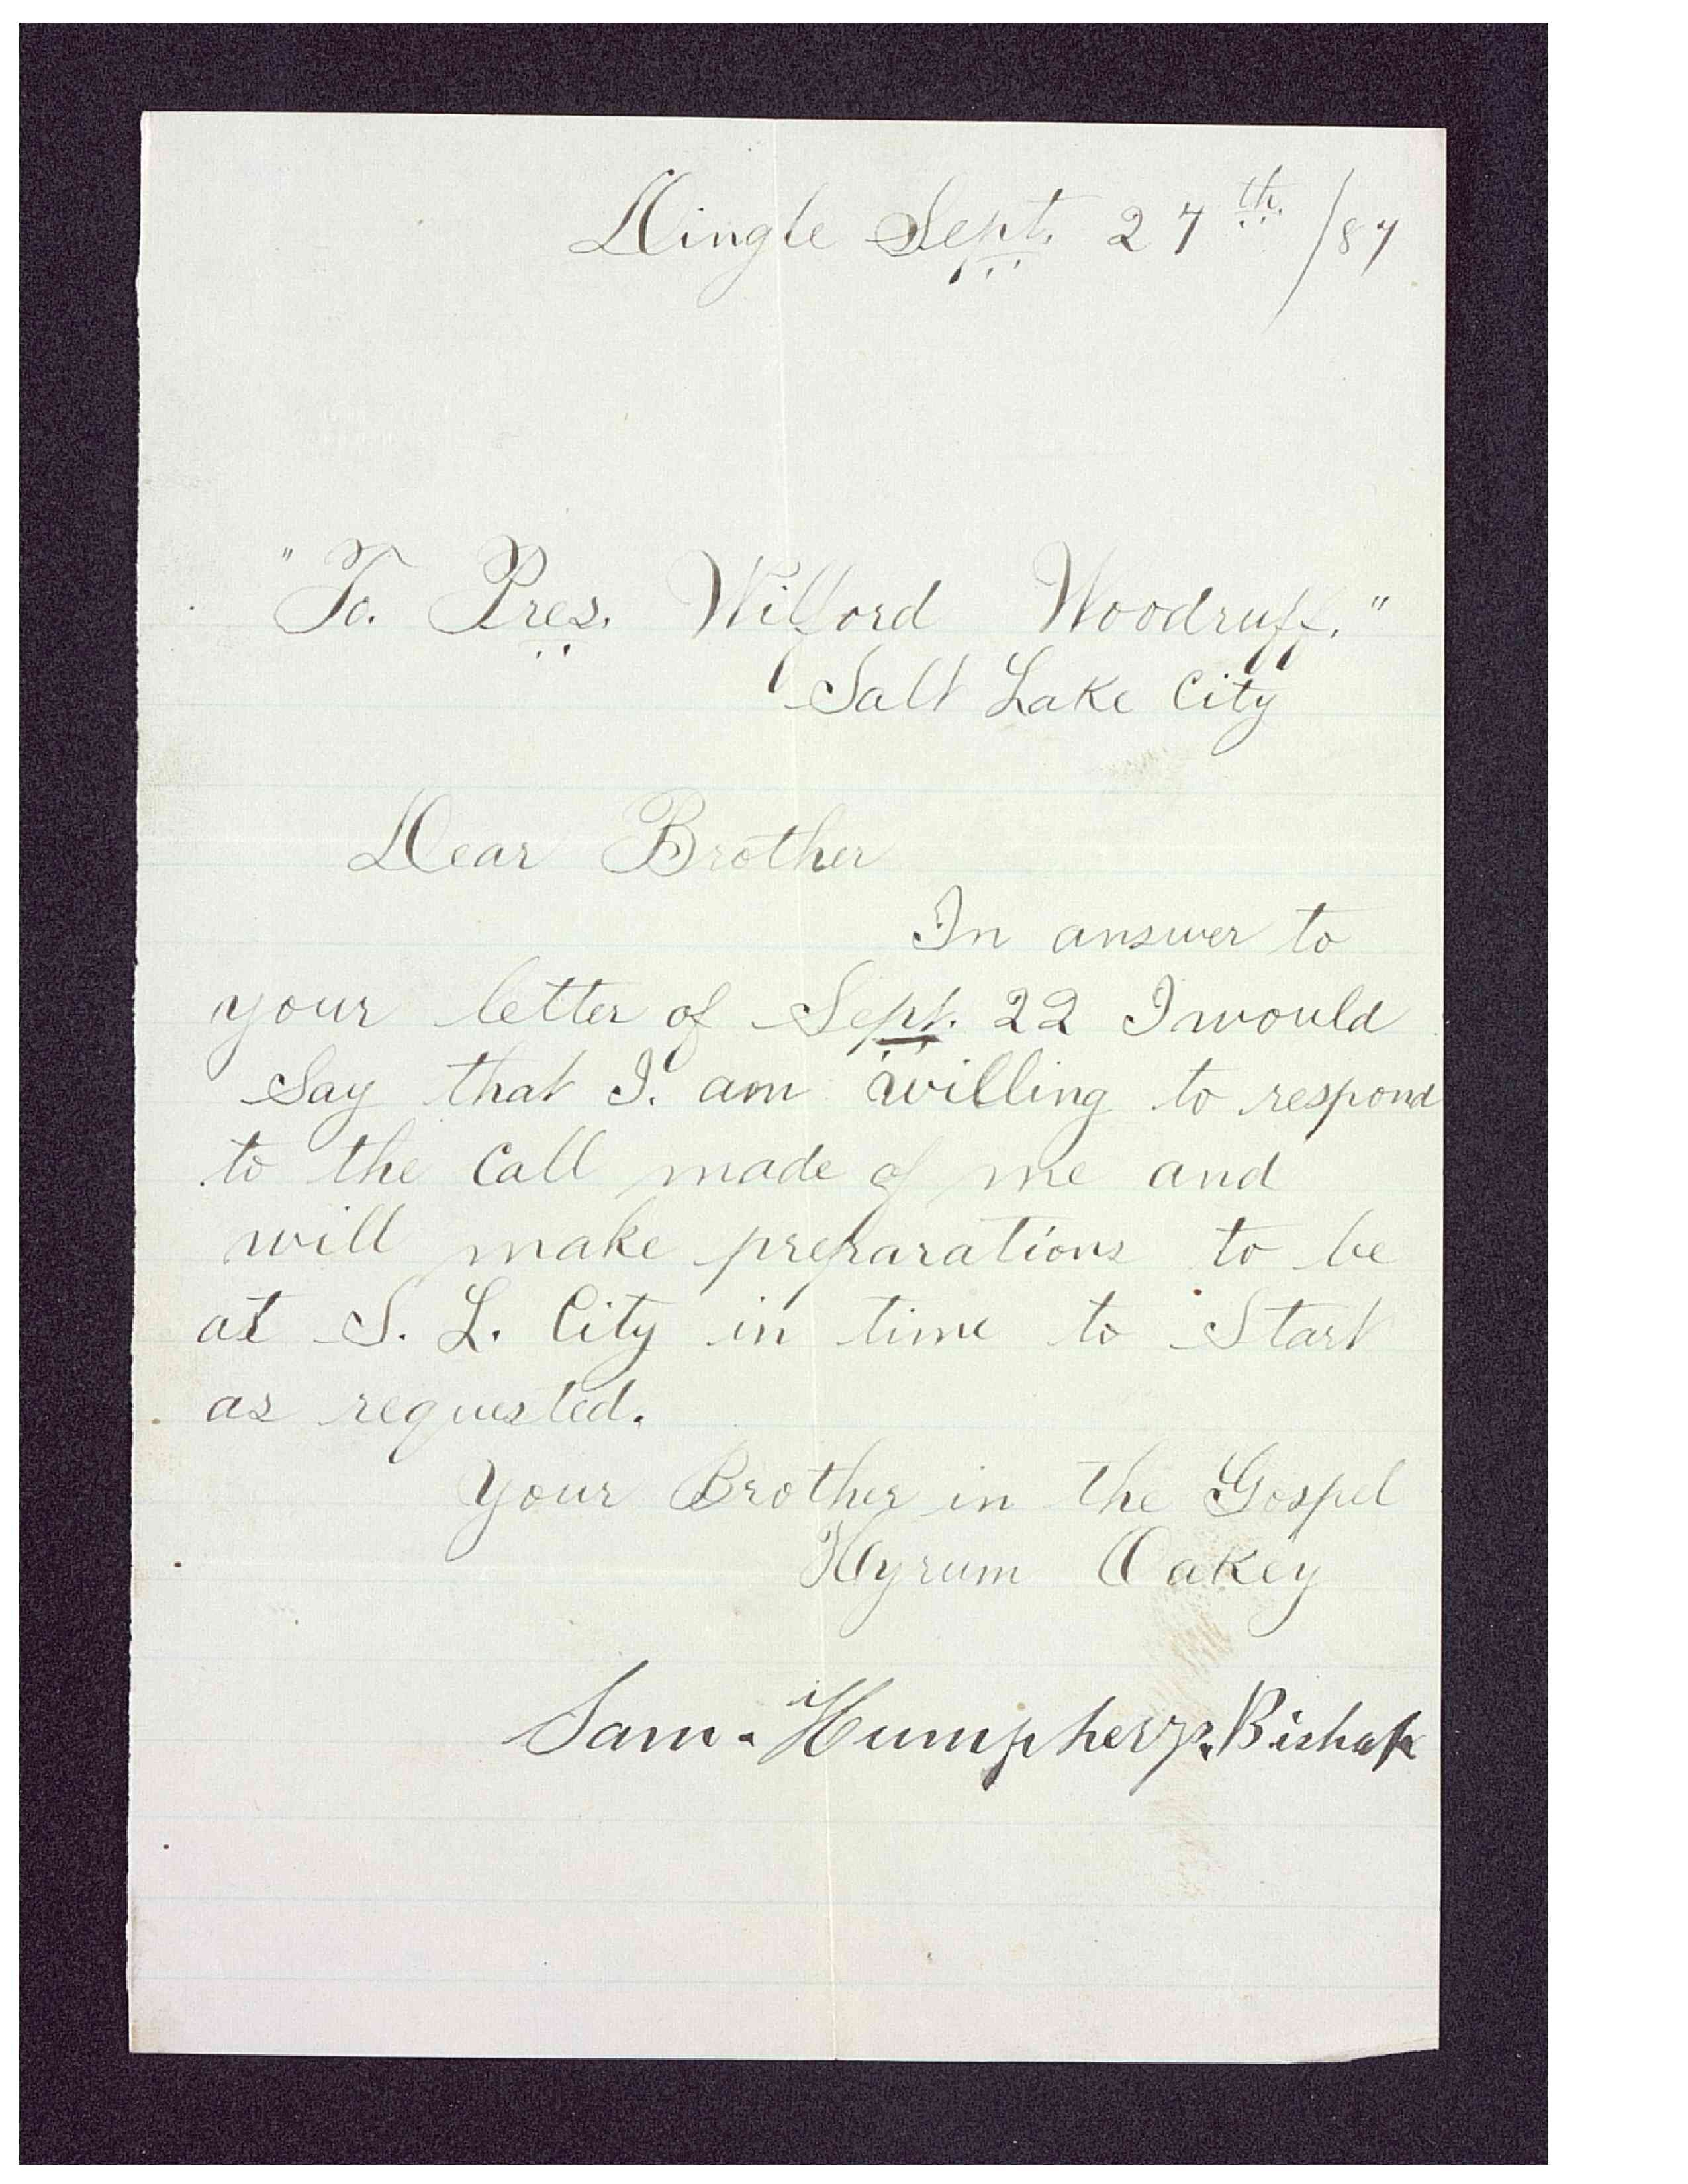 Dingle Sept. 27th. /87
"To. Pres. Wilford Woodruff."
Salt Lake City
Dear Brother
In answer to
your letter of Sept. 22 I would
Say that I. am willing to respond
to the Call made of me and
will make preparations to be
at S. L. City in time to Start
as requested.
Your Brother in the Gospel
Hyrum Oakey
Sam. Humpherys. Bishop